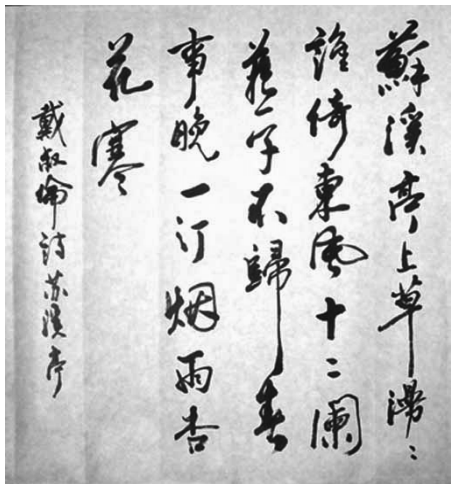 蘇溪亭上草漫〻
誰倚東風十二闌
燕子不歸春
事晚一汀烟雨杏
花寒
戴叔倫诗苏溪亭